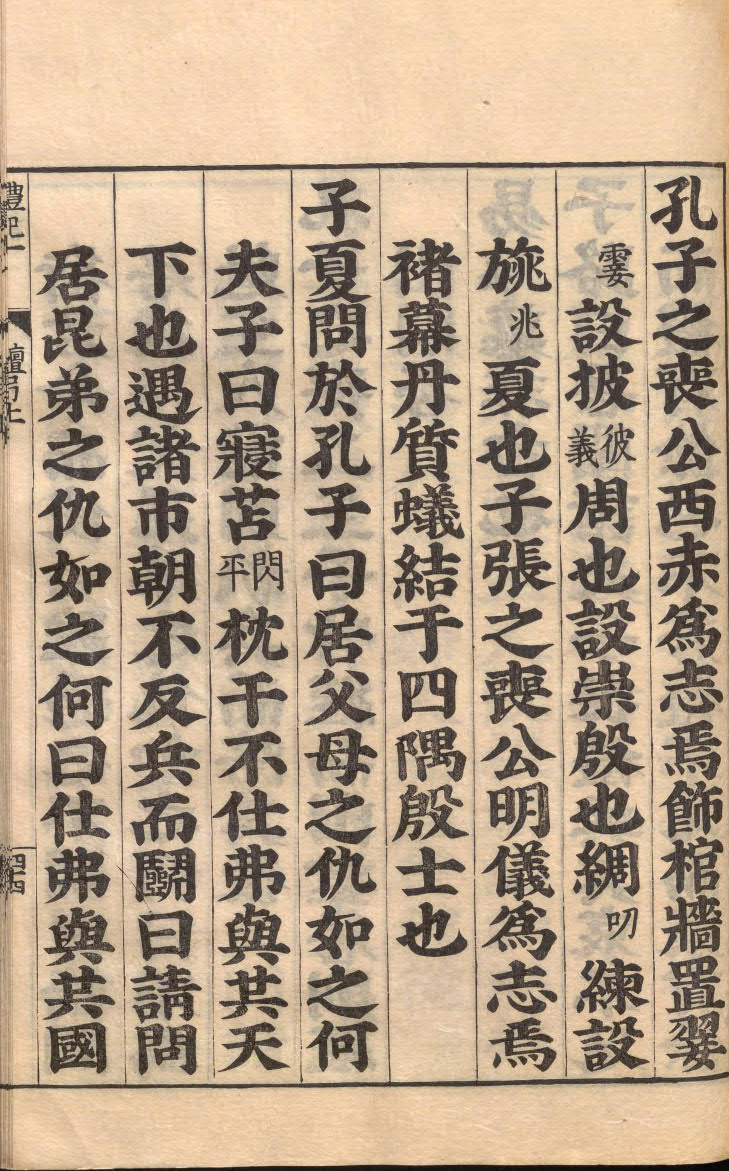 孔子之喪公西赤爲志焉飾棺牆置翣
霎設披彼義周也設崇殷也綢叨練設
旐兆夏也子張之喪公明儀爲志焉
褚幕丹質蟻結于四隅殷士也
子夏問於孔子曰居父母之仇如之何
夫子曰寢苫閃平枕干不仕弗與共天
下也遇諸市朝不反兵而鬭曰請問
居昆弟之仇如之何曰仕弗與共國
禮記一 檀弓上 四十四